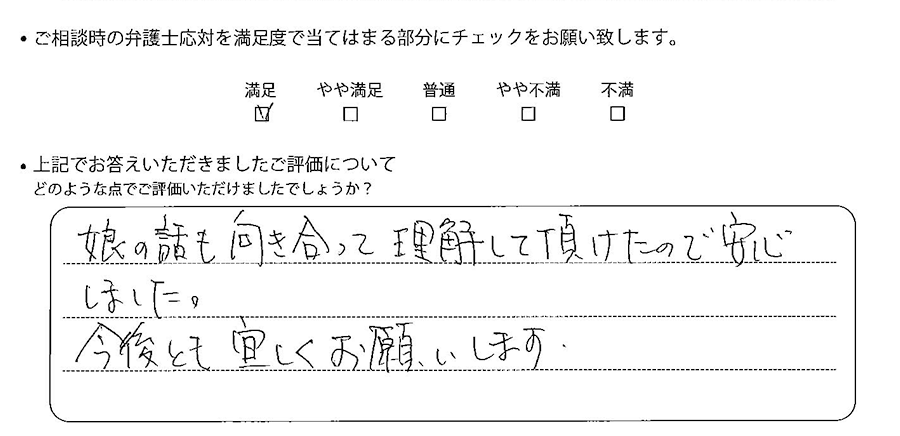 • ご相談時の弁護士応対を満足度で当てはまる部分にチェックをお願い致します。
満足 やや満足 普通 やや不満 不満
☑ □ □ □ □
• 上記でお答えいただきましたご評価について
どのような点でご評価いただけましたでしょうか？
娘の話も向き合って理解して頂けたので安心
しました。
今後とも宜しくお願いします.